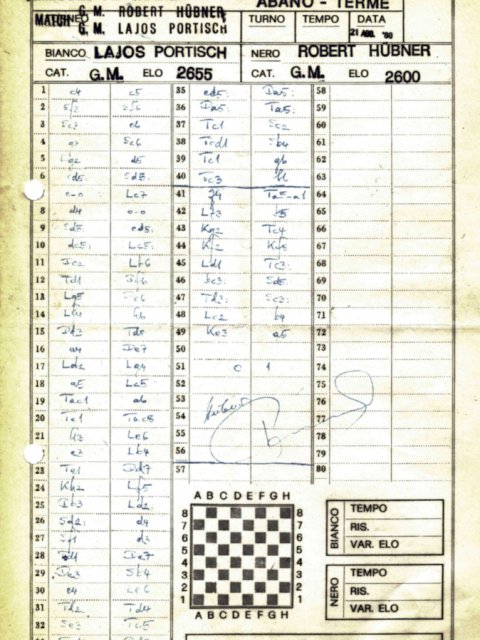 ABANO - TERME
MATCH G. M. ROBERT HÜBNER
G. M. LAJOS PORTISCH
TURNO TEMPO DATA
21 AGO. '80
BIANCO LAJOS PORTISCH NERO ROBERT HÜBNER
CAT. G.M. ELO 2655 CAT. G.M. ELO 2600
1 c4 c5 35 Da5: 58
2 36 Ta5: 59
3 Sc3 e6 37 Tc1 Sc2 60
4 g3 Sc6 38 Tcd1 Sb4 61
5 Lg2 d5 39 Tc1 g6 62
6 cd5: Sd5: 40 Tc3 63
0-0 Le7 41 g4 Ta5-a1 64
8 d4 0-0 42 Lf3 65
9 Sd5: ed5: 43 Kg2 Tc4 66
10 dc5: Lc5: 44 67
11 Lf6 45 Ld1 Tc3: 68
12 Td1 46 Sd5: 69
13 Lg5 47 Sc3: 70
14 48 Lc2 b4 71
15 Td8 49 Ke3 a5 72
16 a4 De7 50 73
17 Ld2 Lg4 51 0 1 74
18 a5 Lc5 52 75
19 Tac1 a6 53 76
20 Te1 Tac8 54 77
21 h3 Le6 55 78
e3 Lb4 56 79
23 Te1 Dd7 57 80
24 Kh2 Lf5
25 Db3 Ld2:
26 Sd2: d4
27 Sf1 d3
28 Td1 De7
29 Sb4
30 e4 Le6
31 Td2 Td4
32 Se3 Tc5
A B C D E F G H
8 8
7 7
6 6
5 5
4 4
3 3
2 2
1 1
A B C D E F G H
BIANCO
TEMPO
RIS.
VAR. ELO
NERO
TEMPO
RIS.
VAR. ELO